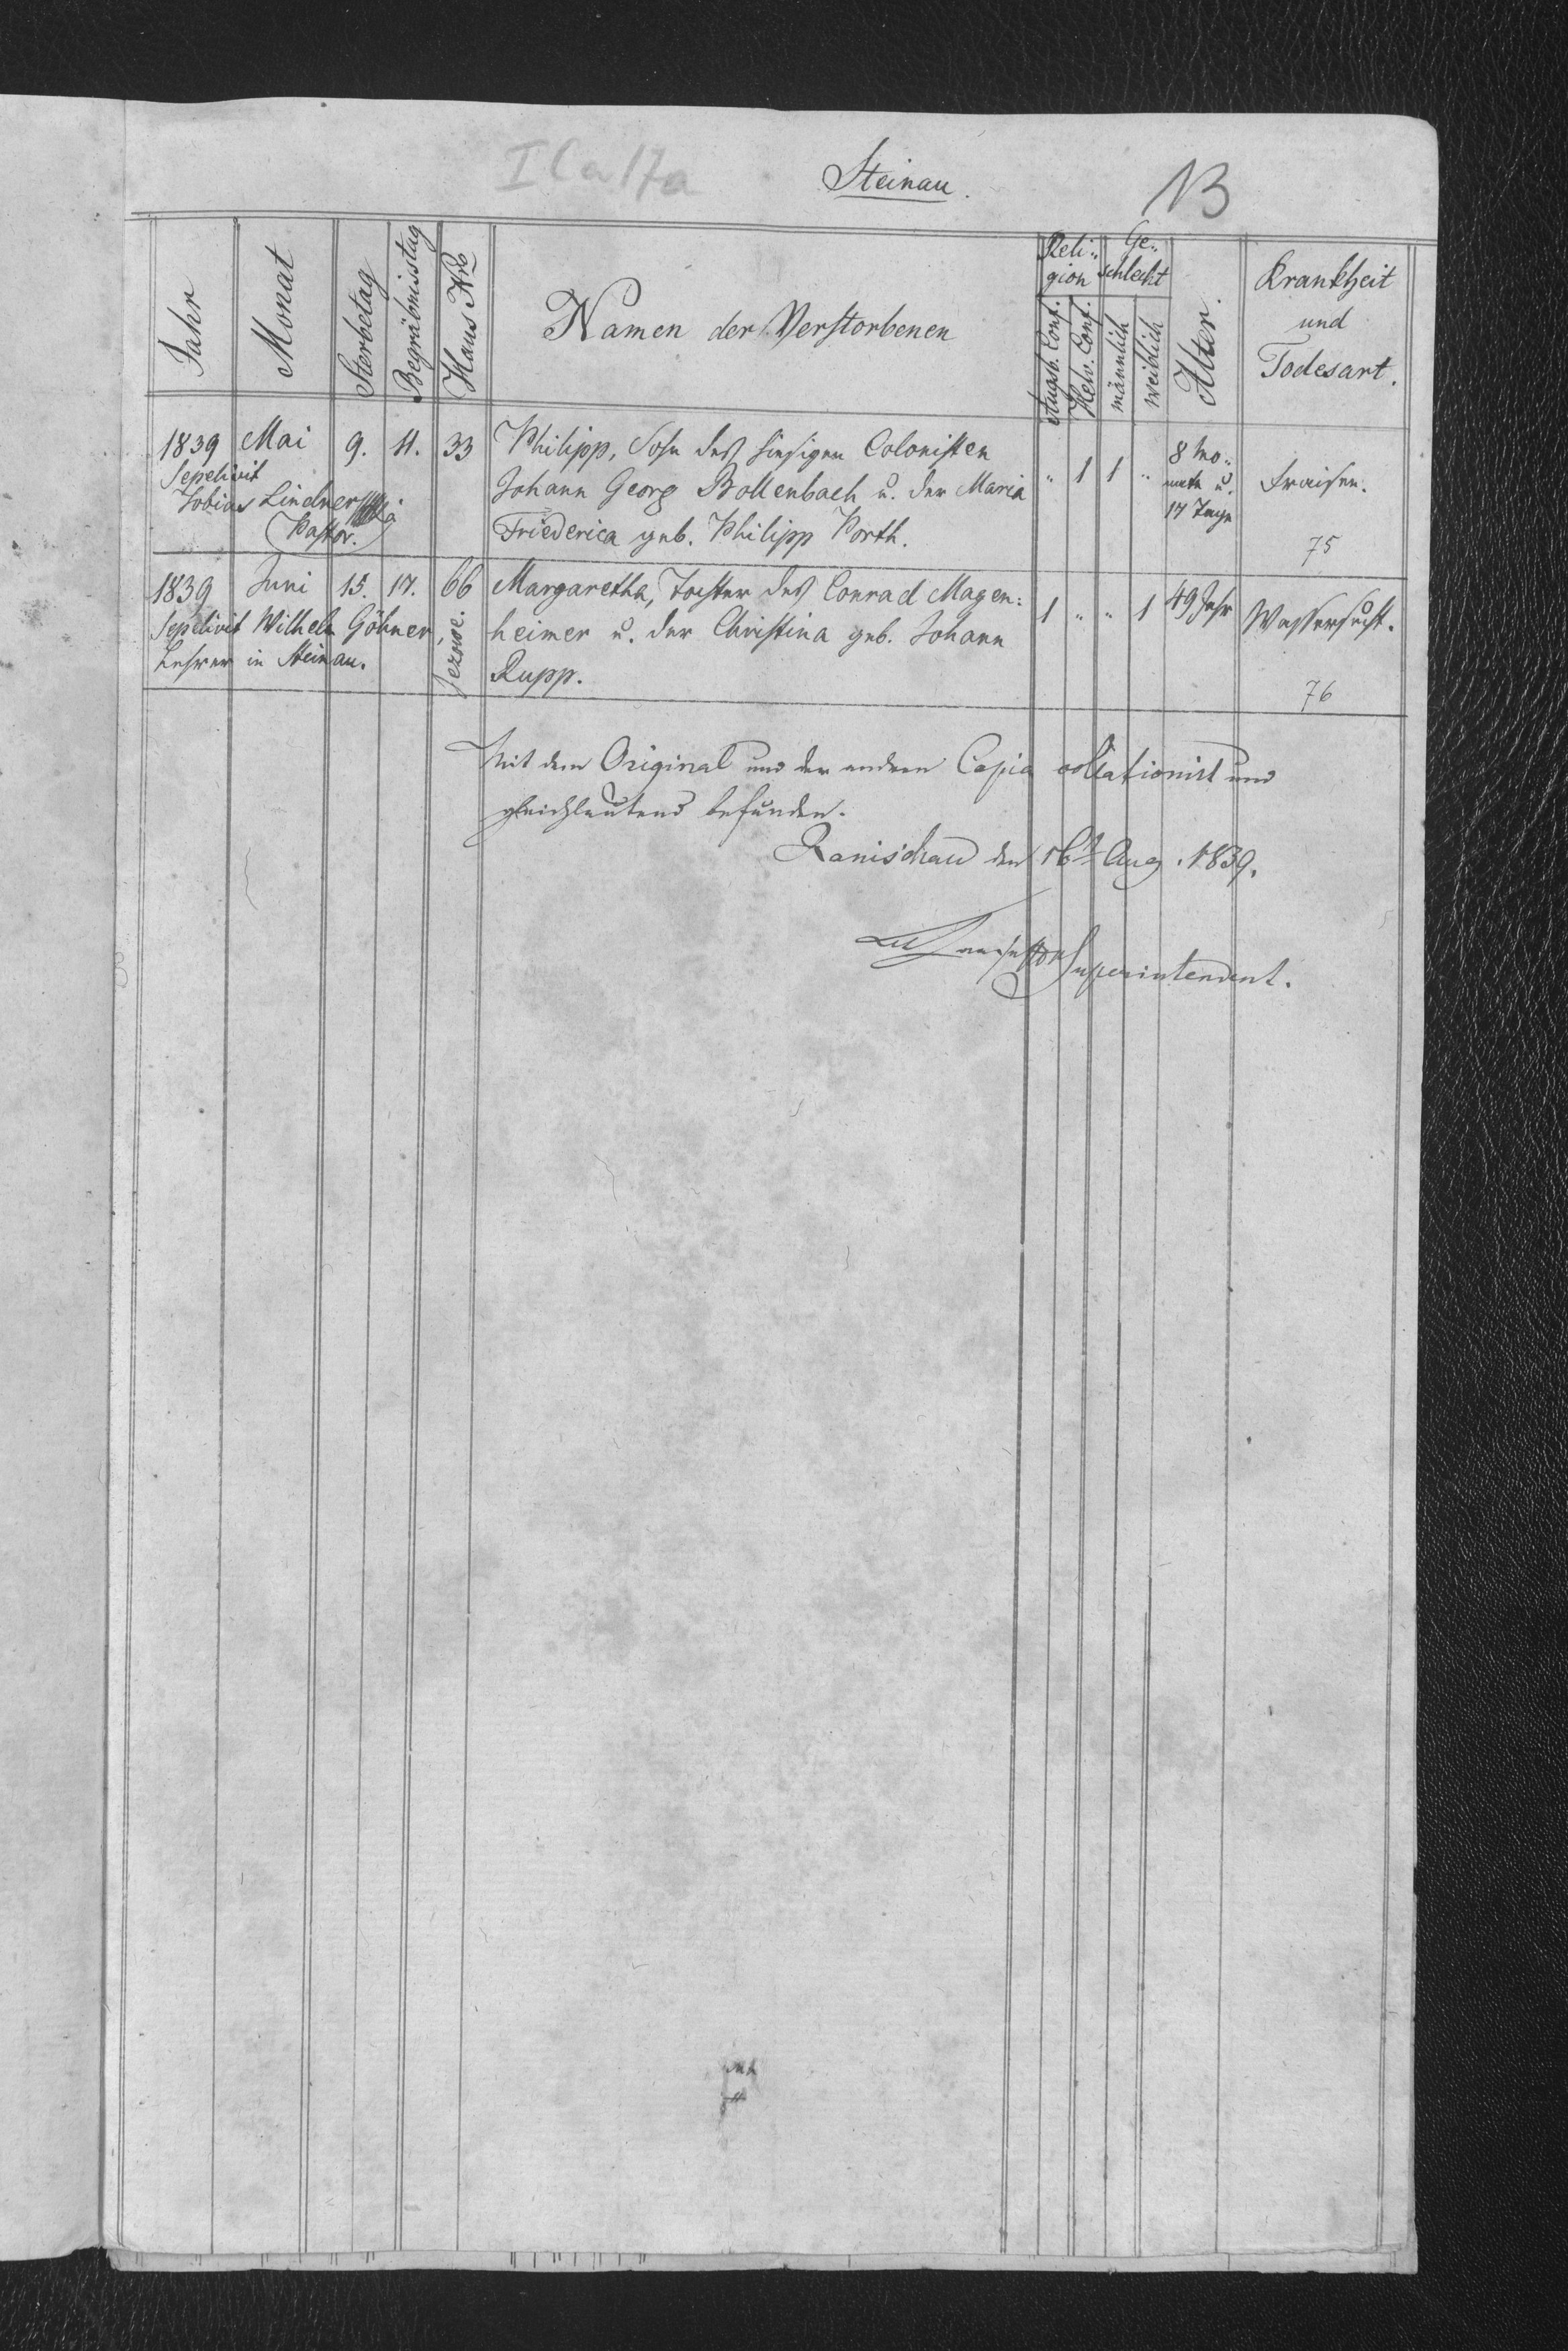 I C a 17a
Steinau.
13
Jahr
Monat
Sterbetag
Begräbnisstag
Haus Nro
Namen der Verstorbenen
Reli-
gion
Augsb. Conf.
Helv. Conf.
Ge-
schlecht
männlich
weiblich
Alter.
Krankheit
und
Todesart.
1839 Mai 9. 11. 33 Philipp, Sohn des hiesigen Colonisten " 1 1 " 8 Mo- Fraisen.
Sepelivit Johann Georg Bollenbach u. der Maria nate u.
Tobias Lindner Friederica geb. Philipp Porth. 17 Tage
Pastor. 75
1839 Juni 15. 17. 66 Margaretha, Tochter des Conrad Magen= 1 " " 1 49 Jahr Wassersucht.
Sepelivit Wilhelm Göhner, Jezowe. heimer u. der Christina geb. Johann
Lehrer in Steinau. Rupp. 76
Mit dem Original und der andern Copia collationirt und
gleichlautend befunden.
Ranischau den 16t Aug. 1839.
Superintendent.